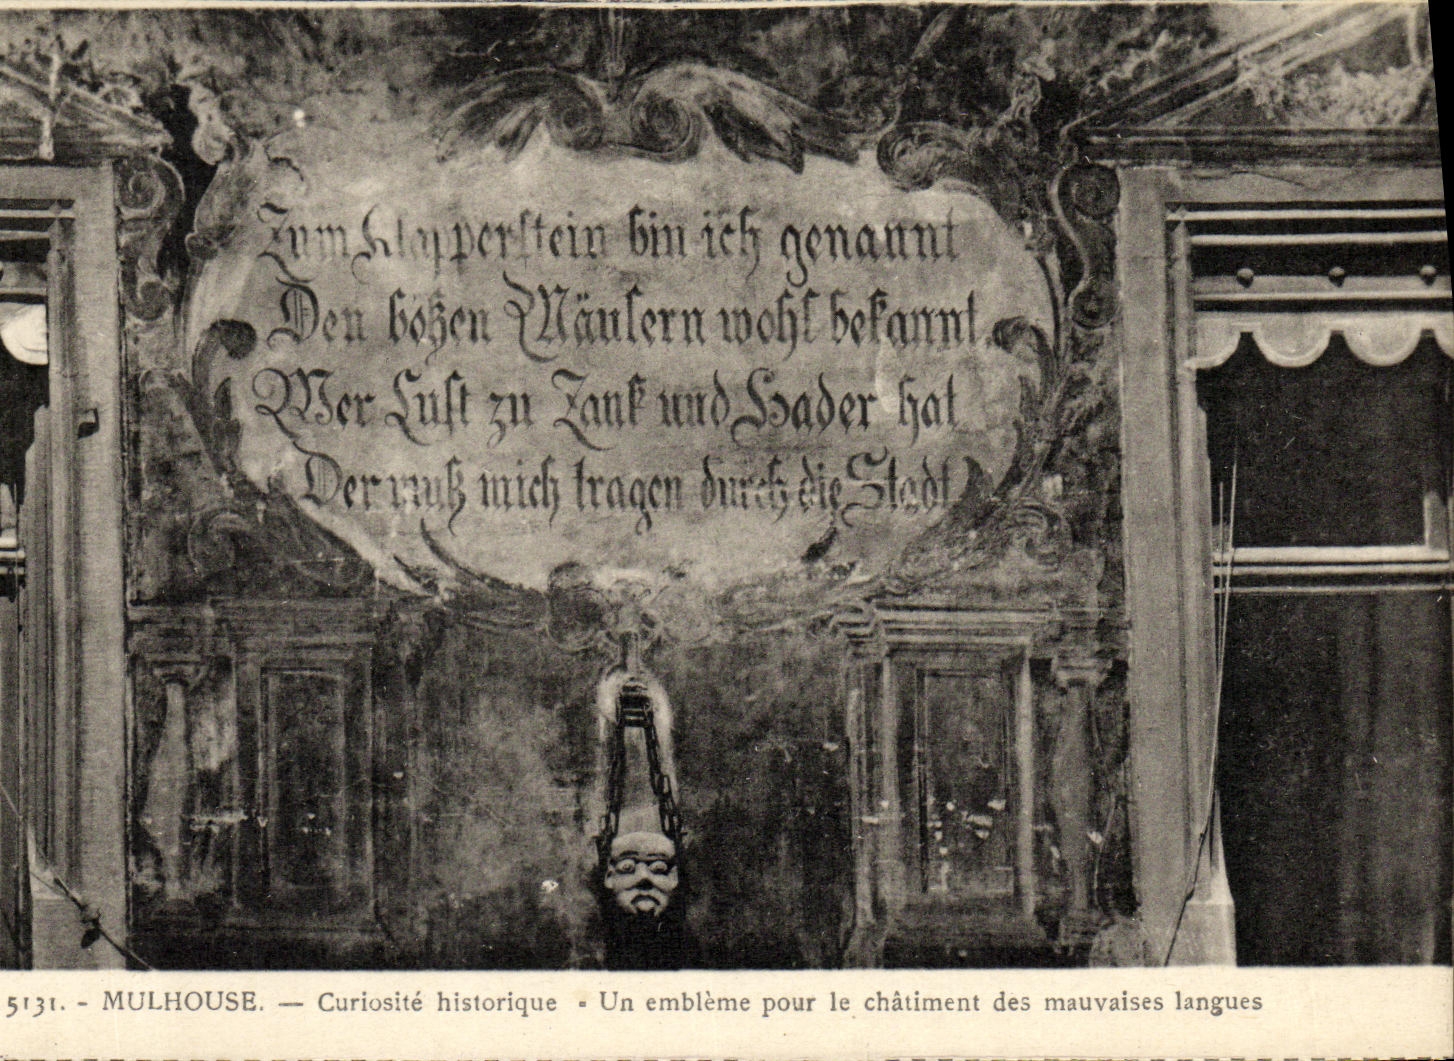 Zum Klapperstein bin ich genannt
Den bößen Mäulern wohl bekannt.
Wer Lust zu Zank und Hader hat
Der muß mich tragen durch die Stadt
5131. - MULHOUSE. — Curiosité historique - Un emblème pour le châtiment des mauvaises langues